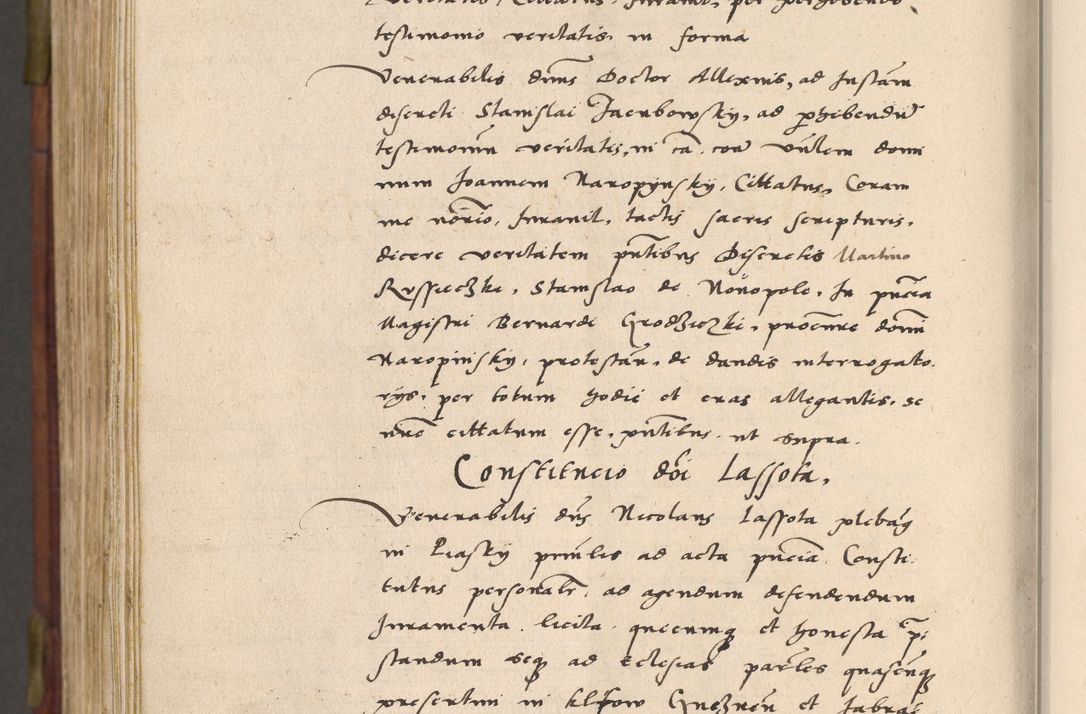 testimonio veritatis in forma
Venerabilis dnus Doctor Allexius, ad Instam
discreti Stanislai Jacubowsky, ad phibendu
testimoniu veritatis, in ca con vnlem domi
num Joannem Naropynsky, Cittatus, Coram
me notrio, Iurauit, tactis sacris scripturis,
dicere veritatem pntibus Discretis Martino
Stanislao de Nouopole, In pncia
Magistri Bernardi Grodziczki, procuure domi
Naropinsky, protestan, de dandis interrogato
rys, per totum hodie et cras allegantis, se
nuc cittatum esse, pntibus ut supra.
Constitucio doi Lassota,
Venerabilis dns Nicolaus Lassota plebag
in Piasky prinlis ad acta pncia Consti
tutus personalr, ad agendum defendendum
Iuramenta licita quecumq et honesta p
standum seq ad Eclesias parles quascunq
presertim in Gneznen et